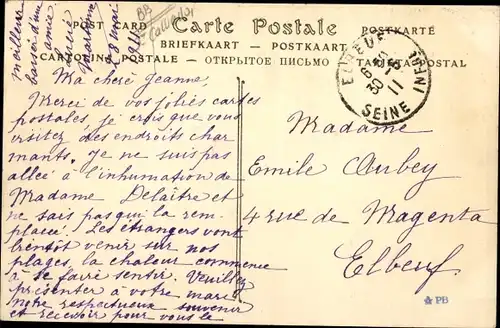 POST CARD Carte Postale POSTKARTE
BRIEFKAART - POSTKAART
CARTOLINA POSTALE - ОТКРЫТОЕ ПИСЬМО - TARJETA POSTAL
ELBEUF
6 30
30-5
11
SEINE INFRE
8 mai
1911
BB
Calvados
Ma chère Jeanne,
Merci de vos jolies cartes
postales, je crois que vous
visitez des endroits char
mants. Je ne suis pas
allée à l'inhumation de
Madame Delaître et
ne sais pas qui la rem-
place. Les étrangers vont
bientôt venir sur nos
plages, la chaleur commence
à se faire sentir. Veuillez
présenter à votre mari
notre respectueux souvenir
et recevoir pour vous le
meilleur
baiser d'une
amie
Madame
Emile Aubey
4 rue de Magenta
Elbeuf
PB